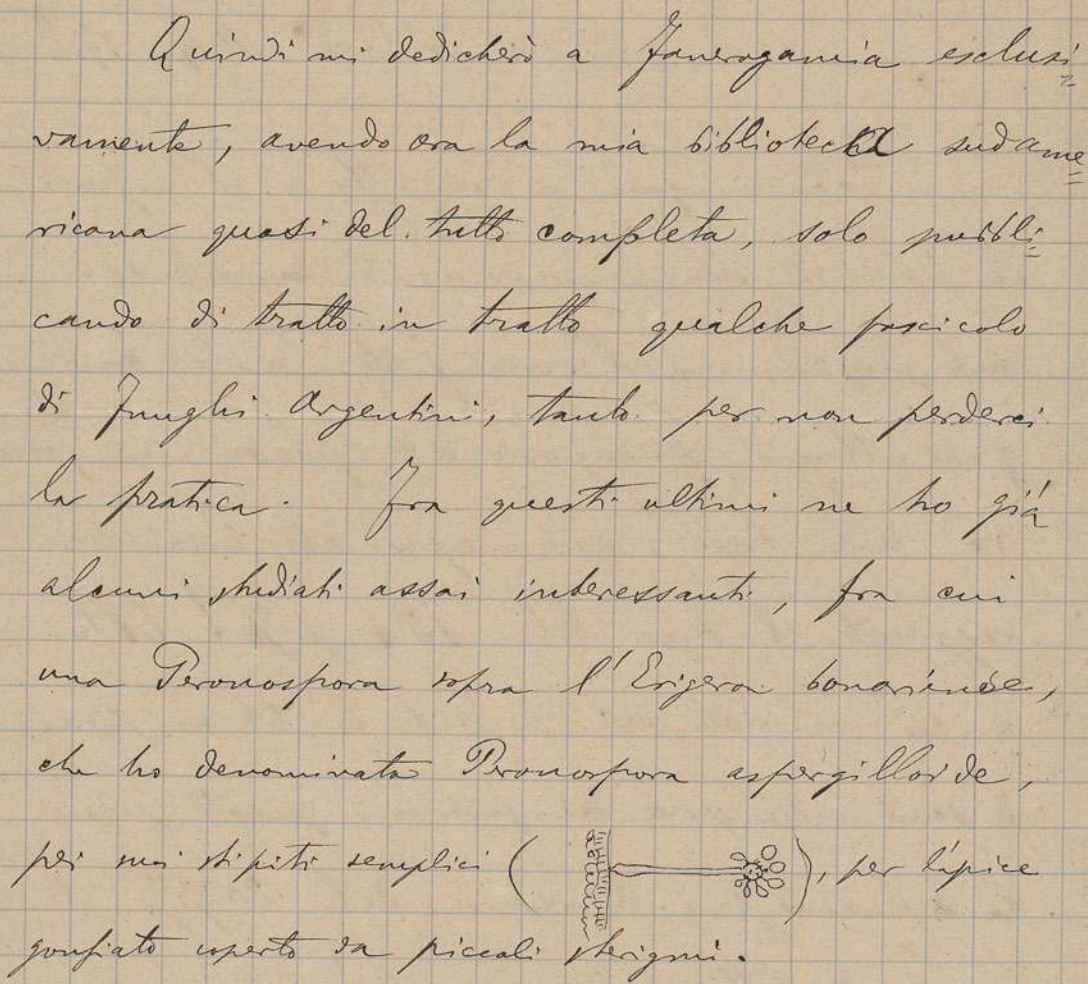 Quindi mi dedicherò a Fanerogamia esclusi=
vamente, avendo ora la mia biblioteca sudame=
ricana quasi del tutto completa, solo pubbli=
cando di tratto in tratto qualche fascicolo
di Funghi Argentini, tanto per non perderci
la pratica. Fra questi ultimi ne ho già
alcuni studiati assai interessanti, fra cui
una Peronospora sopra l'Erigeron bonariense,
che ho denominata Peronospora aspergilloide,
pei suoi stipiti semplici ( ), per l'apice
gonfiato coperto da piccoli sterigmi.